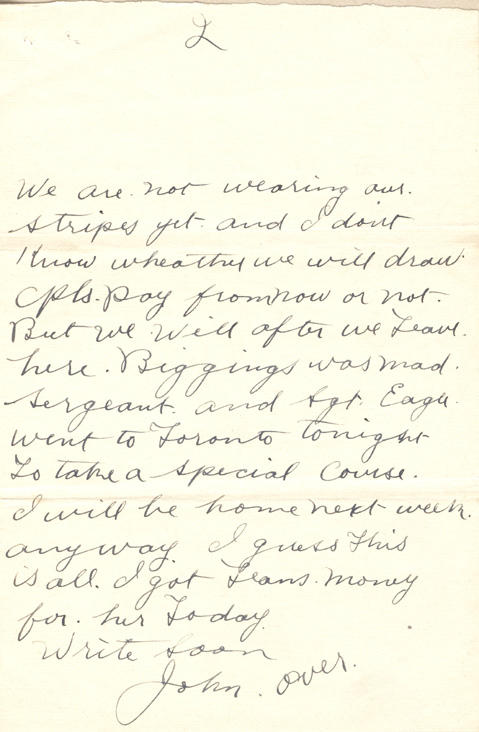 2
We are not wearing our.
stripes yet. and I dont
Know wheather we will draw
Cpls. Pay from now or not.
But we will after we Leave.
here. Biggings was mad.
Sergeant. and Sgt. Eagle.
went to Toronto tonight
To take a special Course.
I will be home next week.
anyway. I guess This
is all. I got Jeans. money
for. her Today.
Write soon
John. over.